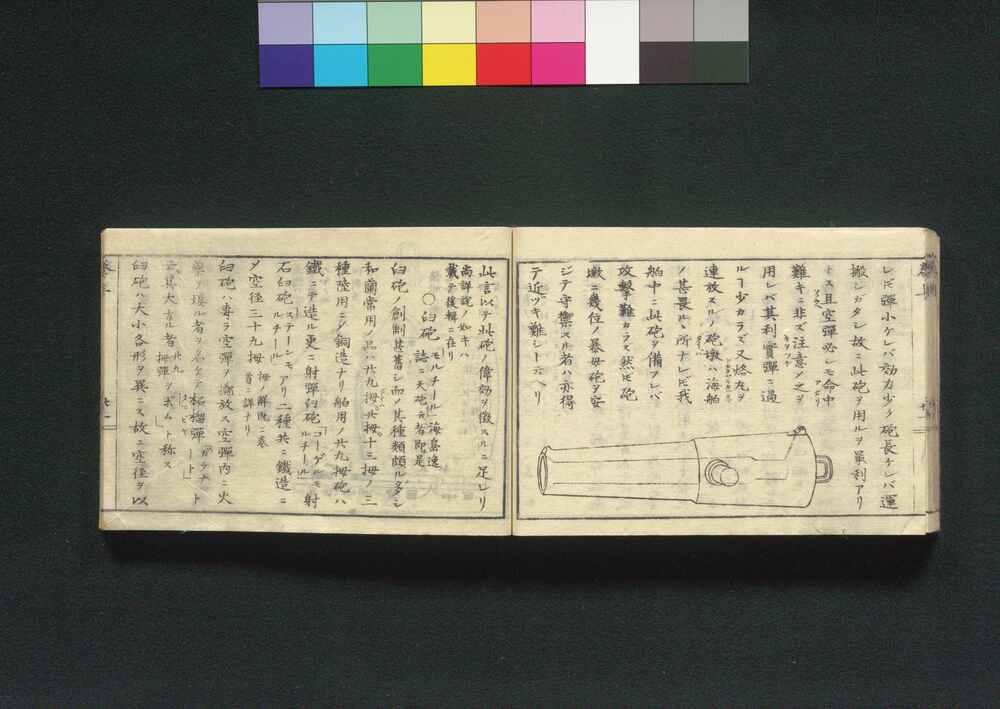 レ𪜈彈小ケレバ効力少ク砲長ケレバ運
搬シガタシ故ニ此砲ヲ用ルヲ最利アリ
トス且空彈必シモ命中
難キニ非ズ注意メ之ヲ
用レバ其利實彈ニ過
ルヿ少カラズ又焙丸ヲ
連放スルノ砲墩ハ海舶
ノ甚畏ルヽ所ナレ𪜈我
舶中ニ此砲ヲ備フレバ
攻擊難カラズ然𪜈砲
墩ニ幾位ノ暴母砲ヲ安
ジテ守禦スル者ハ亦得
テ近ヅキ難シト云ヘリ
此言以テ此砲ノ偉効ヲ徴スルニ足レリ
尚詳説ノ如キハ
載テ後輯ニ在リ
〇臼砲 モルチール 海島逸
誌ニ天砲云者即是
臼砲ノ創制其舊シ而メ其種類頗ル多シ
和蘭常用ノ品ハ廿九拇廿拇十三拇ノ三
種陸用ニメ銅造ナリ舶用ノ廿九拇砲ハ
鐵ニテ造ル更ニ射彈臼砲 コーゲルモルチール 射
石臼砲 ステーンモルチール アリ二種共ニ鐵造ニメ
空径三十九拇 拇ノ解既ニ巻首ニ詳ナリ
臼砲ハ専ラ空彈ヲ漁放ス空彈内ニ火
藥ヲ填ル者ヲ名ケテ柘榴彈 ガラナート ト
云其大ナル者 廿九拇彈 ヲボムト称ス
臼砲ハ大小各形ヲ異ニス故ニ空径ヲ以